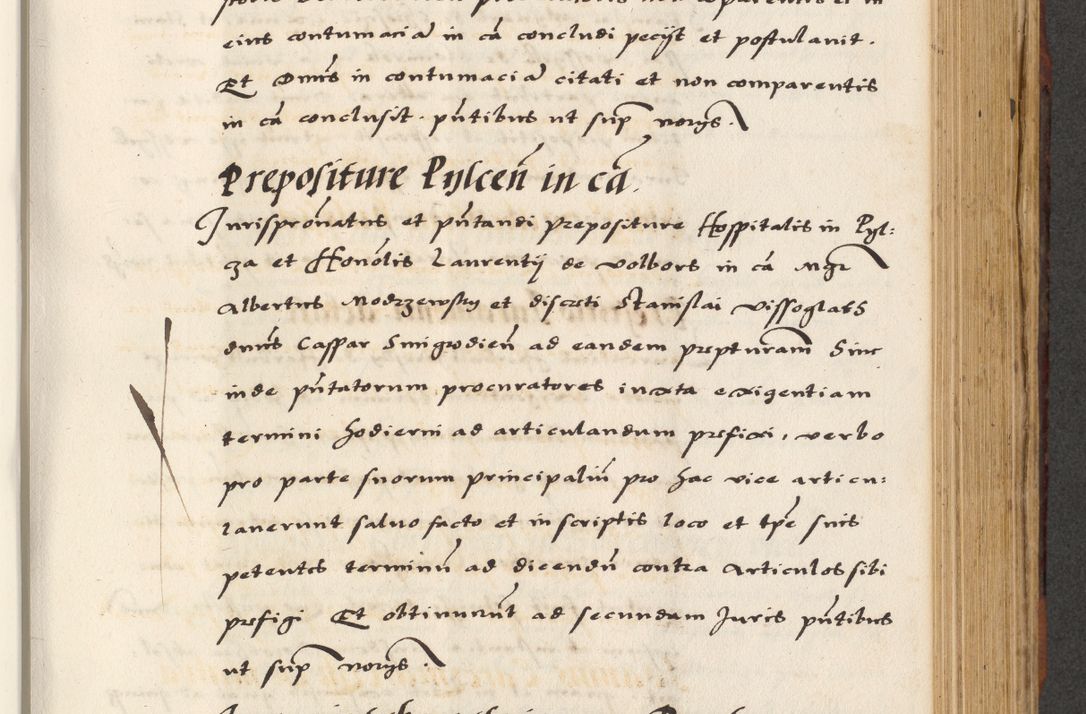 eius contumaciã in cã concludi pecijt et postulavit.
Et Dnũs in contumaciã citati et non comparentis
in cã conclusit. pñtibus ut sup norijs.
Prepositure Pylceñ in cã
Jurispronatus et pñtandi prepositure Hospitalis in Pyl:
cza et Honolis Laurentij de Volbors in cã Mgr
Albertus Modrzewsky et discreti Stanislai Vissoglads
dnũs Caspar Smigrodieñ ad eandem prepturam hinc
inde pñtatorum procuratores iuxta exigentiam
termini hodierni ad articulandum prefixi, verbo
pro parte suorum principaliũ pro hac vice articu:
laverunt salvo facto et in scriptis loco et tpe suis
petentes terminũ ad dicendũ contra Articulos sibi
prefigi Et obtinuerũt ad secundam Juris pñtibus
ut sup norijs.